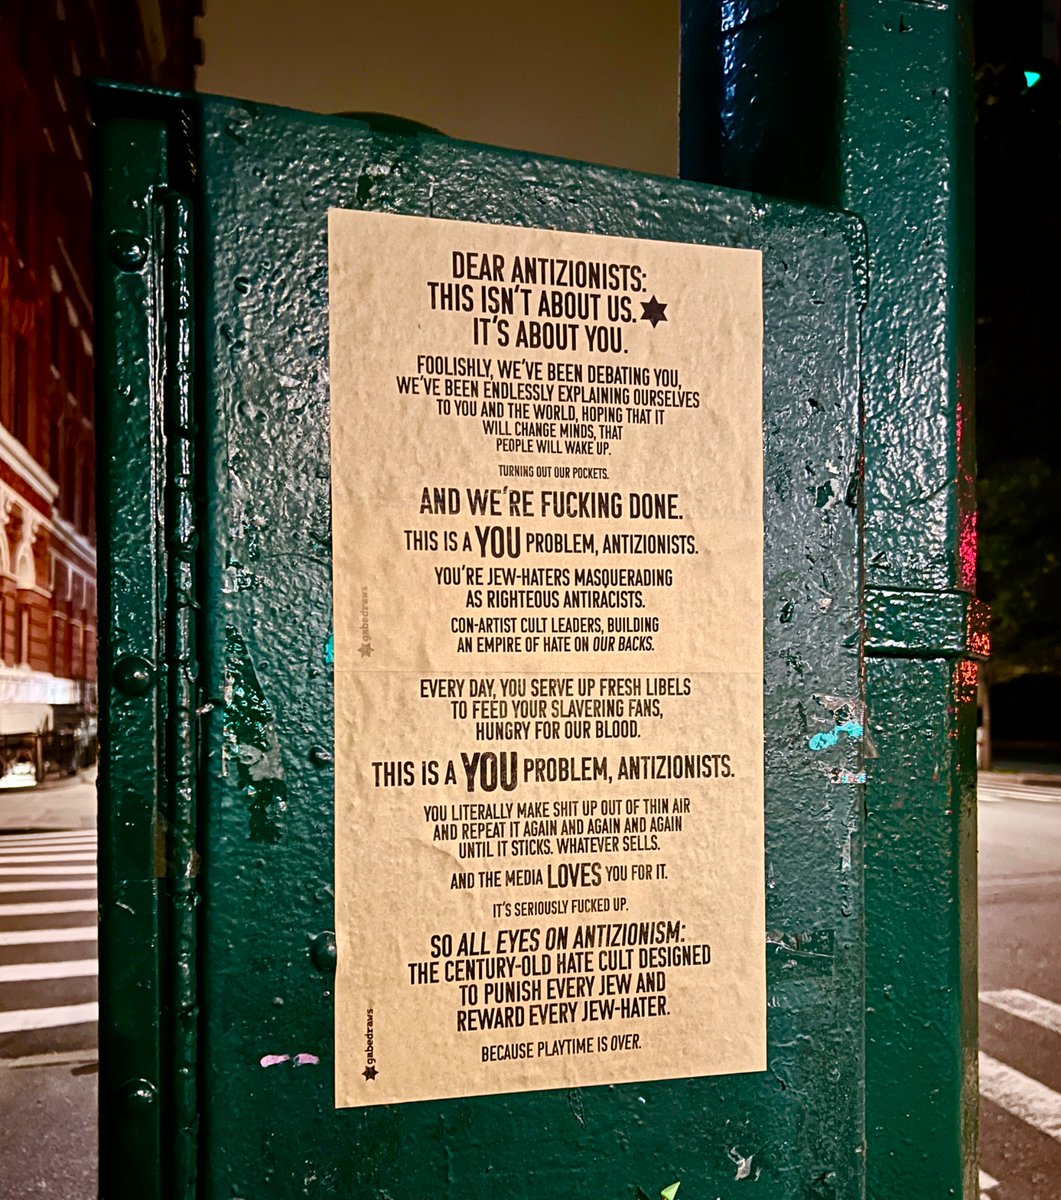 DEAR ANTIZIONISTS:
THIS ISN'T ABOUT US.
IT'S ABOUT YOU.
FOOLISHLY, WE'VE BEEN DEBATING YOU,
WE'VE BEEN ENDLESSLY EXPLAINING OURSELVES
TO YOU AND THE WORLD, HOPING THAT IT
WILL CHANGE MINDS, THAT
PEOPLE WILL WAKE UP.
TURNING OUT OUR POCKETS.
AND WE'RE FUCKING DONE.
THIS IS A YOU PROBLEM, ANTIZIONISTS.
YOU'RE JEW-HATERS MASQUERADING
AS RIGHTEOUS ANTIRACISTS.
CON-ARTIST CULT LEADERS, BUILDING
AN EMPIRE OF HATE ON OUR BACKS.
gabedraws
EVERY DAY, YOU SERVE UP FRESH LIBELS
TO FEED YOUR SLAVERING FANS,
HUNGRY FOR OUR BLOOD.
THIS IS A YOU PROBLEM, ANTIZIONISTS.
YOU LITERALLY MAKE SHIT UP OUT OF THIN AIR
AND REPEAT IT AGAIN AND AGAIN AND AGAIN
UNTIL IT STICKS. WHATEVER SELLS.
AND THE MEDIA LOVES YOU FOR IT.
IT'S SERIOUSLY FUCKED UP.
SO ALL EYES ON ANTIZIONISM:
THE CENTURY-OLD HATE CULT DESIGNED
TO PUNISH EVERY JEW AND
REWARD EVERY JEW-HATER.
BECAUSE PLAYTIME IS OVER.
gabedraws